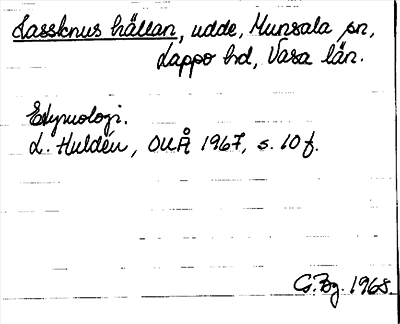 Lassknus hällan, udde, Munsala sn,
Lappo hd, Vasa län.
Etymologi.
L. Huldén, OUÅ 1967, s. 10 f.
G. Bg. 1968.